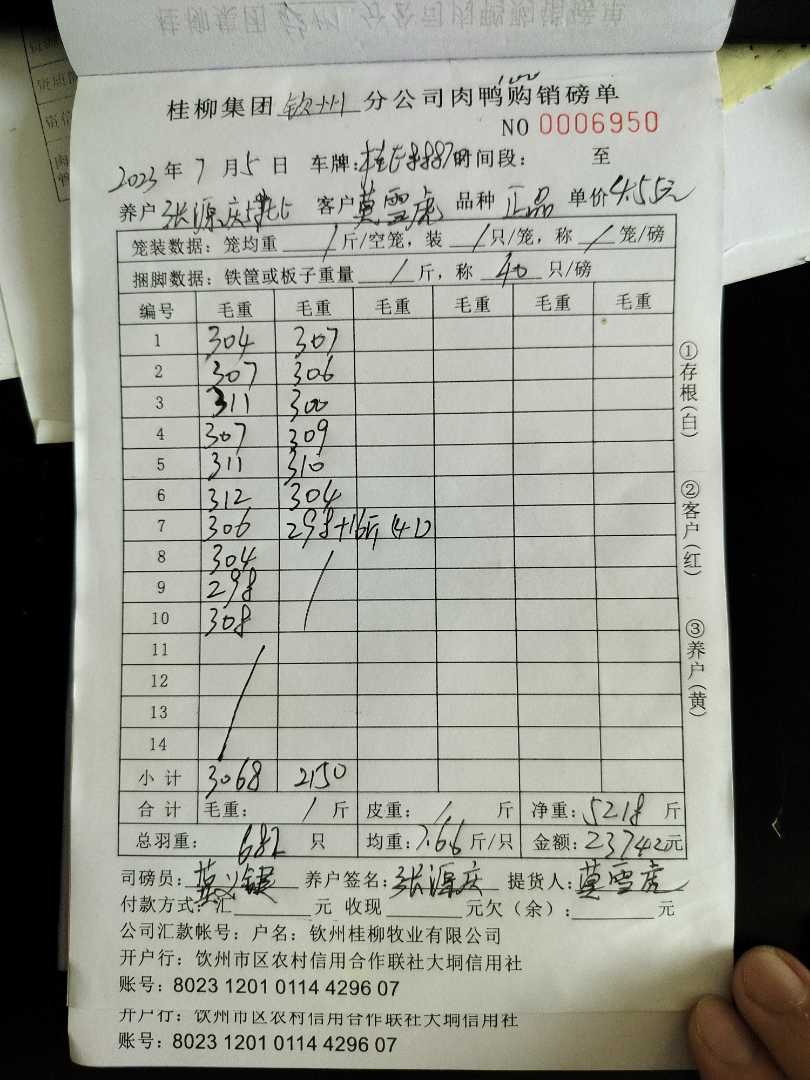 桂柳集团 钦州 分公司肉鸭购销磅单
NO 0006950
2023 年 7 月 5 日 车牌: 时间段: 至
养户 张源庆 客户 莫雪虎 品种 正品 单价 4.55元
笼装数据: 笼均重 / 斤/空笼, 装 / 只/笼, 称 / 笼/磅
捆脚数据: 铁筐或板子重量 / 斤, 称 40 只/磅
编号 毛重 毛重 毛重 毛重 毛重 毛重
1 304 307
2 307 306
3 311 300
4 307 309
5 311 310
6 312 304
7 306 298+16斤(4)
8 304
9 298
10 308
11
12
13
14
小计 3068 2150
合计 毛重: / 斤 皮重: / 斤 净重: 5218 斤
总羽重: 682 只 均重: 7.66 斤/只 金额: 23742元
司磅员: 莫义键 养户签名: 张源庆 提货人: 莫雪虎
付款方式: 汇 元 收现 元欠(余): 元
公司汇款帐号: 户名: 钦州桂柳牧业有限公司
开户行: 钦州市区农村信用合作联社大垌信用社
账号: 8023 1201 0114 4296 07
开户行: 钦州市区农村信用合作联社大垌信用社
账号: 8023 1201 0114 4296 07
①存根(白)
②客户(红)
③养户(黄)